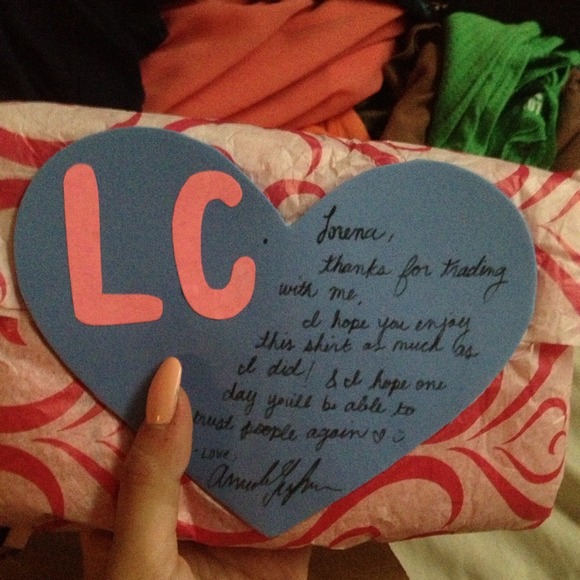 LC
Lorena,
thanks for trading
with me.
I hope you enjoy
this shirt as much as
I did! & I hope one
day you'll be able to
trust people again
- LOVE,